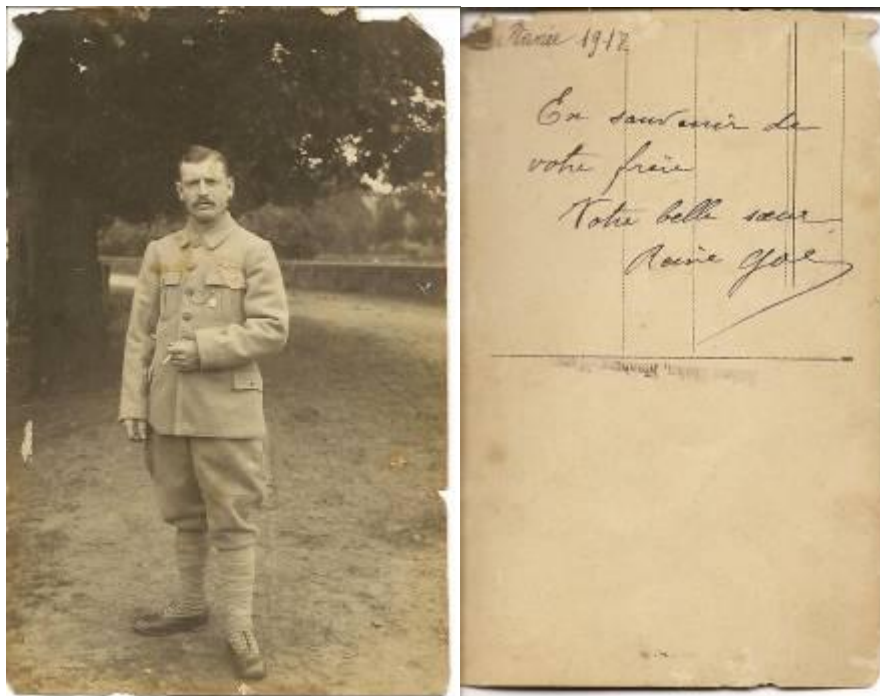 Année 1917
En souvenir de
votre frère
Votre belle sœur
Reine